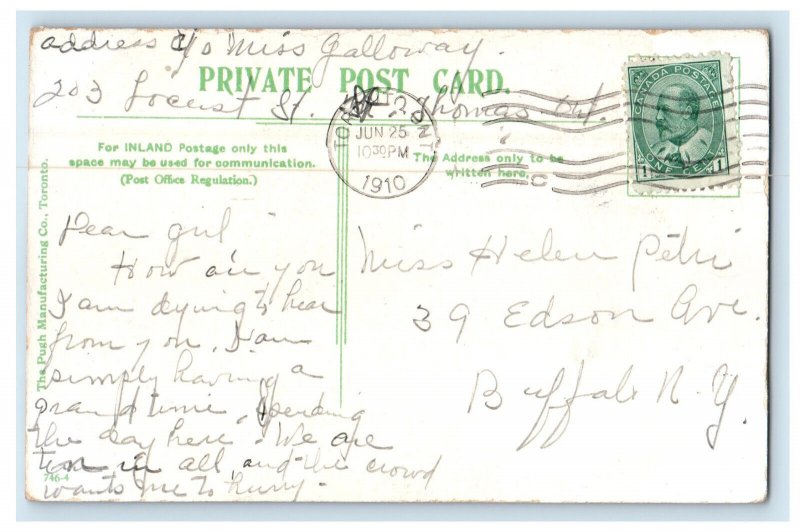 address c/o Miss Galloway.
PRIVATE POST CARD.
203 Locust St. St. Thomas Ont.
CANADA POSTAGE
ONE CENT
1 1
TORONTO, ONT.
JUN 25
10 30 PM
1910
For INLAND Postage only this
space may be used for communication.
(Post Office Regulation.)
The Address only to be
written here.
The Pugh Manufacturing Co., Toronto.
Dear girl
How are you
I am dying to hear
from you, I am
simply having a
grand time, spending
the day here. We are
ten in all and the crowd
wants me to hurry.
746-4
Miss Helen Petri
39 Edson Ave.
Buffalo N.Y.